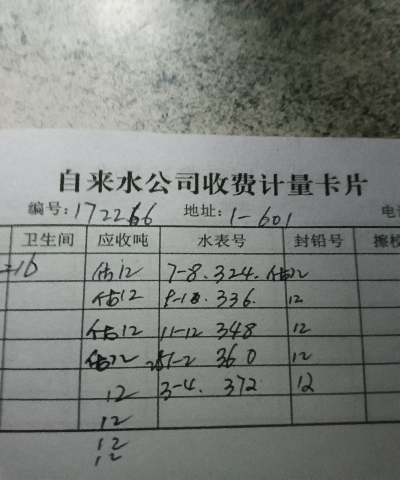 自来水公司收费计量卡片
编号:172266 地址:1-601
卫生间 应收吨 水表号 封铅号
=16 估12 7-8. 324. 估12
估12 9-10. 336. 12
估12 11-12 348 12
估12 1-2 360 12
12 3-4. 372 12
12
12
12